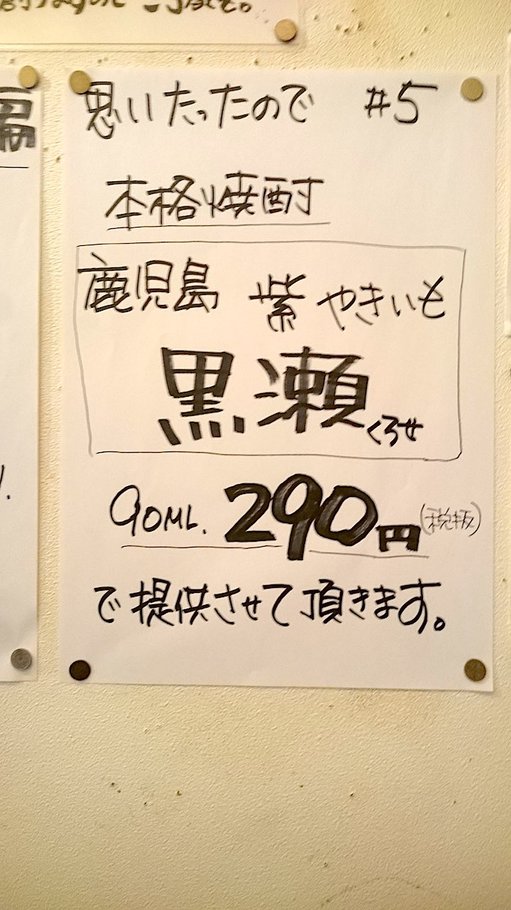 思いたったので #5
本格焼酎
鹿児島 紫やきいも
黒瀬くろせ
90ML. 290円(税抜)
で提供させて頂きます。